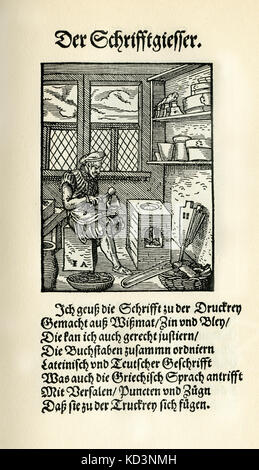 Der Schrifftgiesser.
IA
Ich geuß die Schrifft zu der Druckrey
Gemacht auß Wißmat/Zin und Bley/
Die kan ich auch gerecht justiern/
Die Buchstaben zusammn ordniern
Lateinisch und Teutscher Geschrifft
Was auch die Griechisch Sprach antrifft
Mit Versalen/Puncten und Zügn
Daß sie zu der Truckrey sich fügen.
alamy
KD3NMH